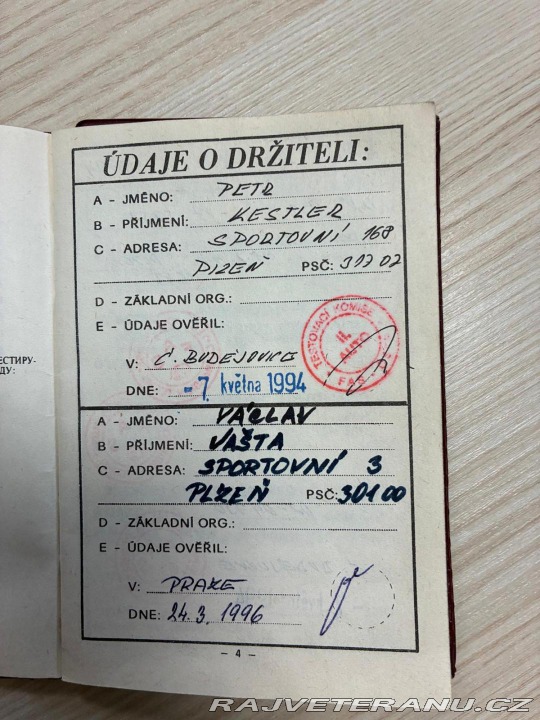 ESTIRU-
DU:
ÚDAJE O DRŽITELI:
A - JMÉNO: PETR
B - PŘÍJMENÍ: KESTLER
C - ADRESA: SPORTOVNÍ 168
PLZEŇ PSČ: 317 02
D - ZÁKLADNÍ ORG.:
E - ÚDAJE OVĚŘIL:
TESTOVACÍ KOMISE
H. AUTO
FAS
V: Č. BUDEJOVICE
DNE: -7. května 1994
A - JMÉNO: VÁCLAV
B - PŘÍJMENÍ: VAŠTA
C - ADRESA: SPORTOVNÍ 3
PLZEŇ PSČ: 301 00
D - ZÁKLADNÍ ORG.:
E - ÚDAJE OVĚŘIL:
V: PRAZE
DNE: 24.3. 1996
- 4 -
RAJVETERANU.CZ